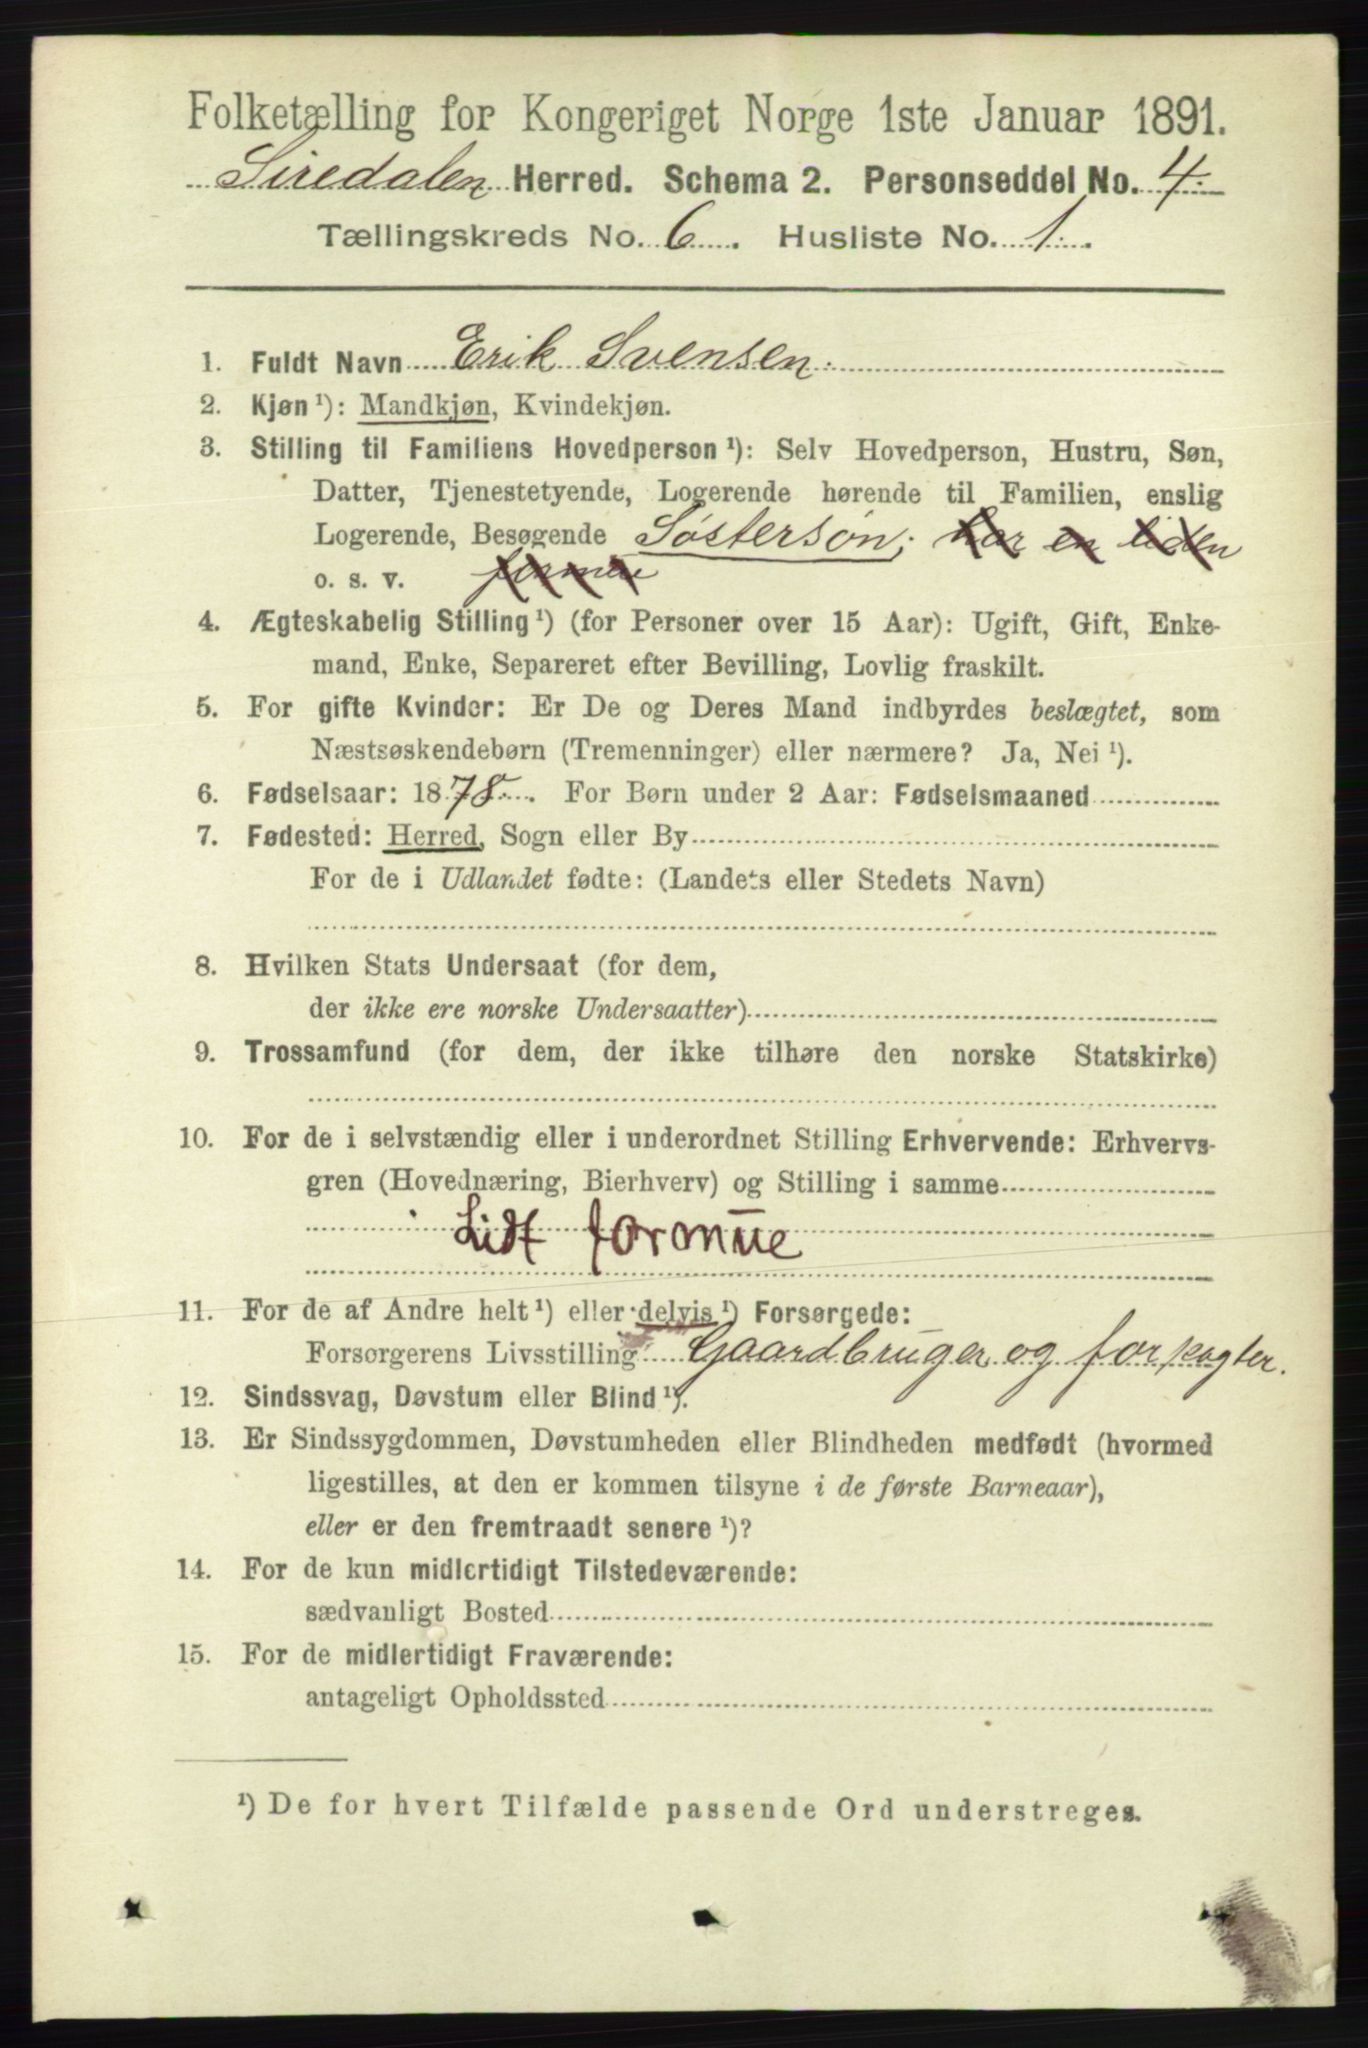 Folketælling for Kongeriget Norge 1ste Januar 1891.
Siredalen Herred. Schema 2. Personseddel No. 4.
Tællingskreds No. 6. Husliste No. 1.
1. Fuldt Navn Erik Svensen.
2. Kjøn ¹): Mandkjøn, Kvindekjøn.
3. Stilling til Familiens Hovedperson ¹): Selv Hovedperson, Hustru, Søn,
Datter, Tjenestetyende, Logerende hørende til Familien, enslig
Logerende, Besøgende Søstersøn; har en liden
o. s. v. formue
4. Ægteskabelig Stilling ¹) (for Personer over 15 Aar): Ugift, Gift, Enke-
mand, Enke, Separeret efter Bevilling, Lovlig fraskilt.
5. For gifte Kvinder: Er De og Deres Mand indbyrdes beslægtet, som
Næstsøskendebørn (Tremenninger) eller nærmere? Ja, Nei ¹).
6. Fødselsaar: 1878. For Børn under 2 Aar: Fødselsmaaned
7. Fødested: Herred, Sogn eller By
For de i Udlandet fødte: (Landets eller Stedets Navn)
8. Hvilken Stats Undersaat (for dem,
der ikke ere norske Undersaatter)
9. Trossamfund (for dem, der ikke tilhøre den norske Statskirke)
10. For de i selvstændig eller i underordnet Stilling Erhvervende: Erhvervs-
gren (Hovednæring, Bierhverv) og Stilling i samme
Lidt formue
11. For de af Andre helt ¹) eller delvis ¹) Forsørgede:
Forsørgerens Livsstilling Gaardbruger og forpagter.
12. Sindssvag, Døvstum eller Blind ¹).
13. Er Sindssygdommen, Døvstumheden eller Blindheden medfødt (hvormed
ligestilles, at den er kommen tilsyne i de første Barneaar),
eller er den fremtraadt senere ¹)?
14. For de kun midlertidigt Tilstedeværende:
sædvanligt Bosted
15. For de midlertidigt Fraværende:
antageligt Opholdssted
¹) De for hvert Tilfælde passende Ord understreges.